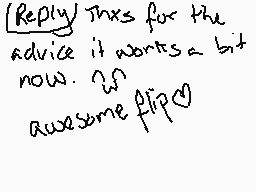 (Reply) Thxs for the
advice it works a bit
now.
awesome flip♡